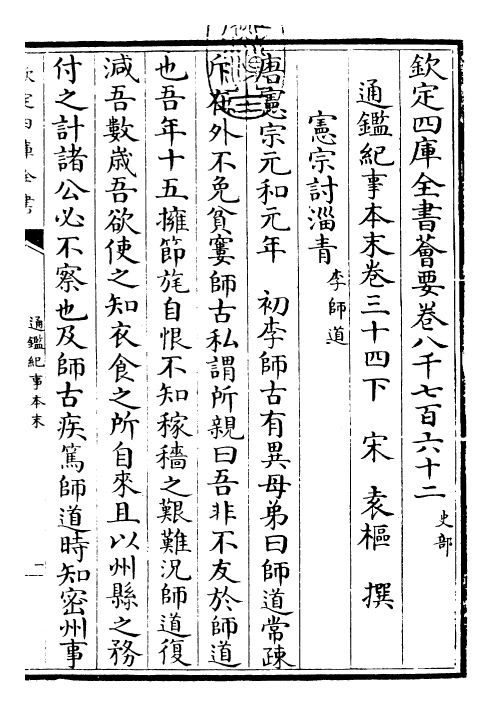 欽定四庫全書薈要卷八千七百六十二 史部
通鑑紀事本末卷三十四下 宋 袁樞 撰
憲宗討淄青 李師道
唐憲宗元和元年 初李師古有異母弟曰師道常疎
斥在外不免貧窶師古私謂所親曰吾非不友於師道
也吾年十五擁節旄自恨不知稼穡之艱難況師道復
減吾數歲吾欲使之知衣食之所自來且以州縣之務
付之計諸公必不察也及師古疾篤師道時知密州事
欽定四庫全書
通鑑紀事本末